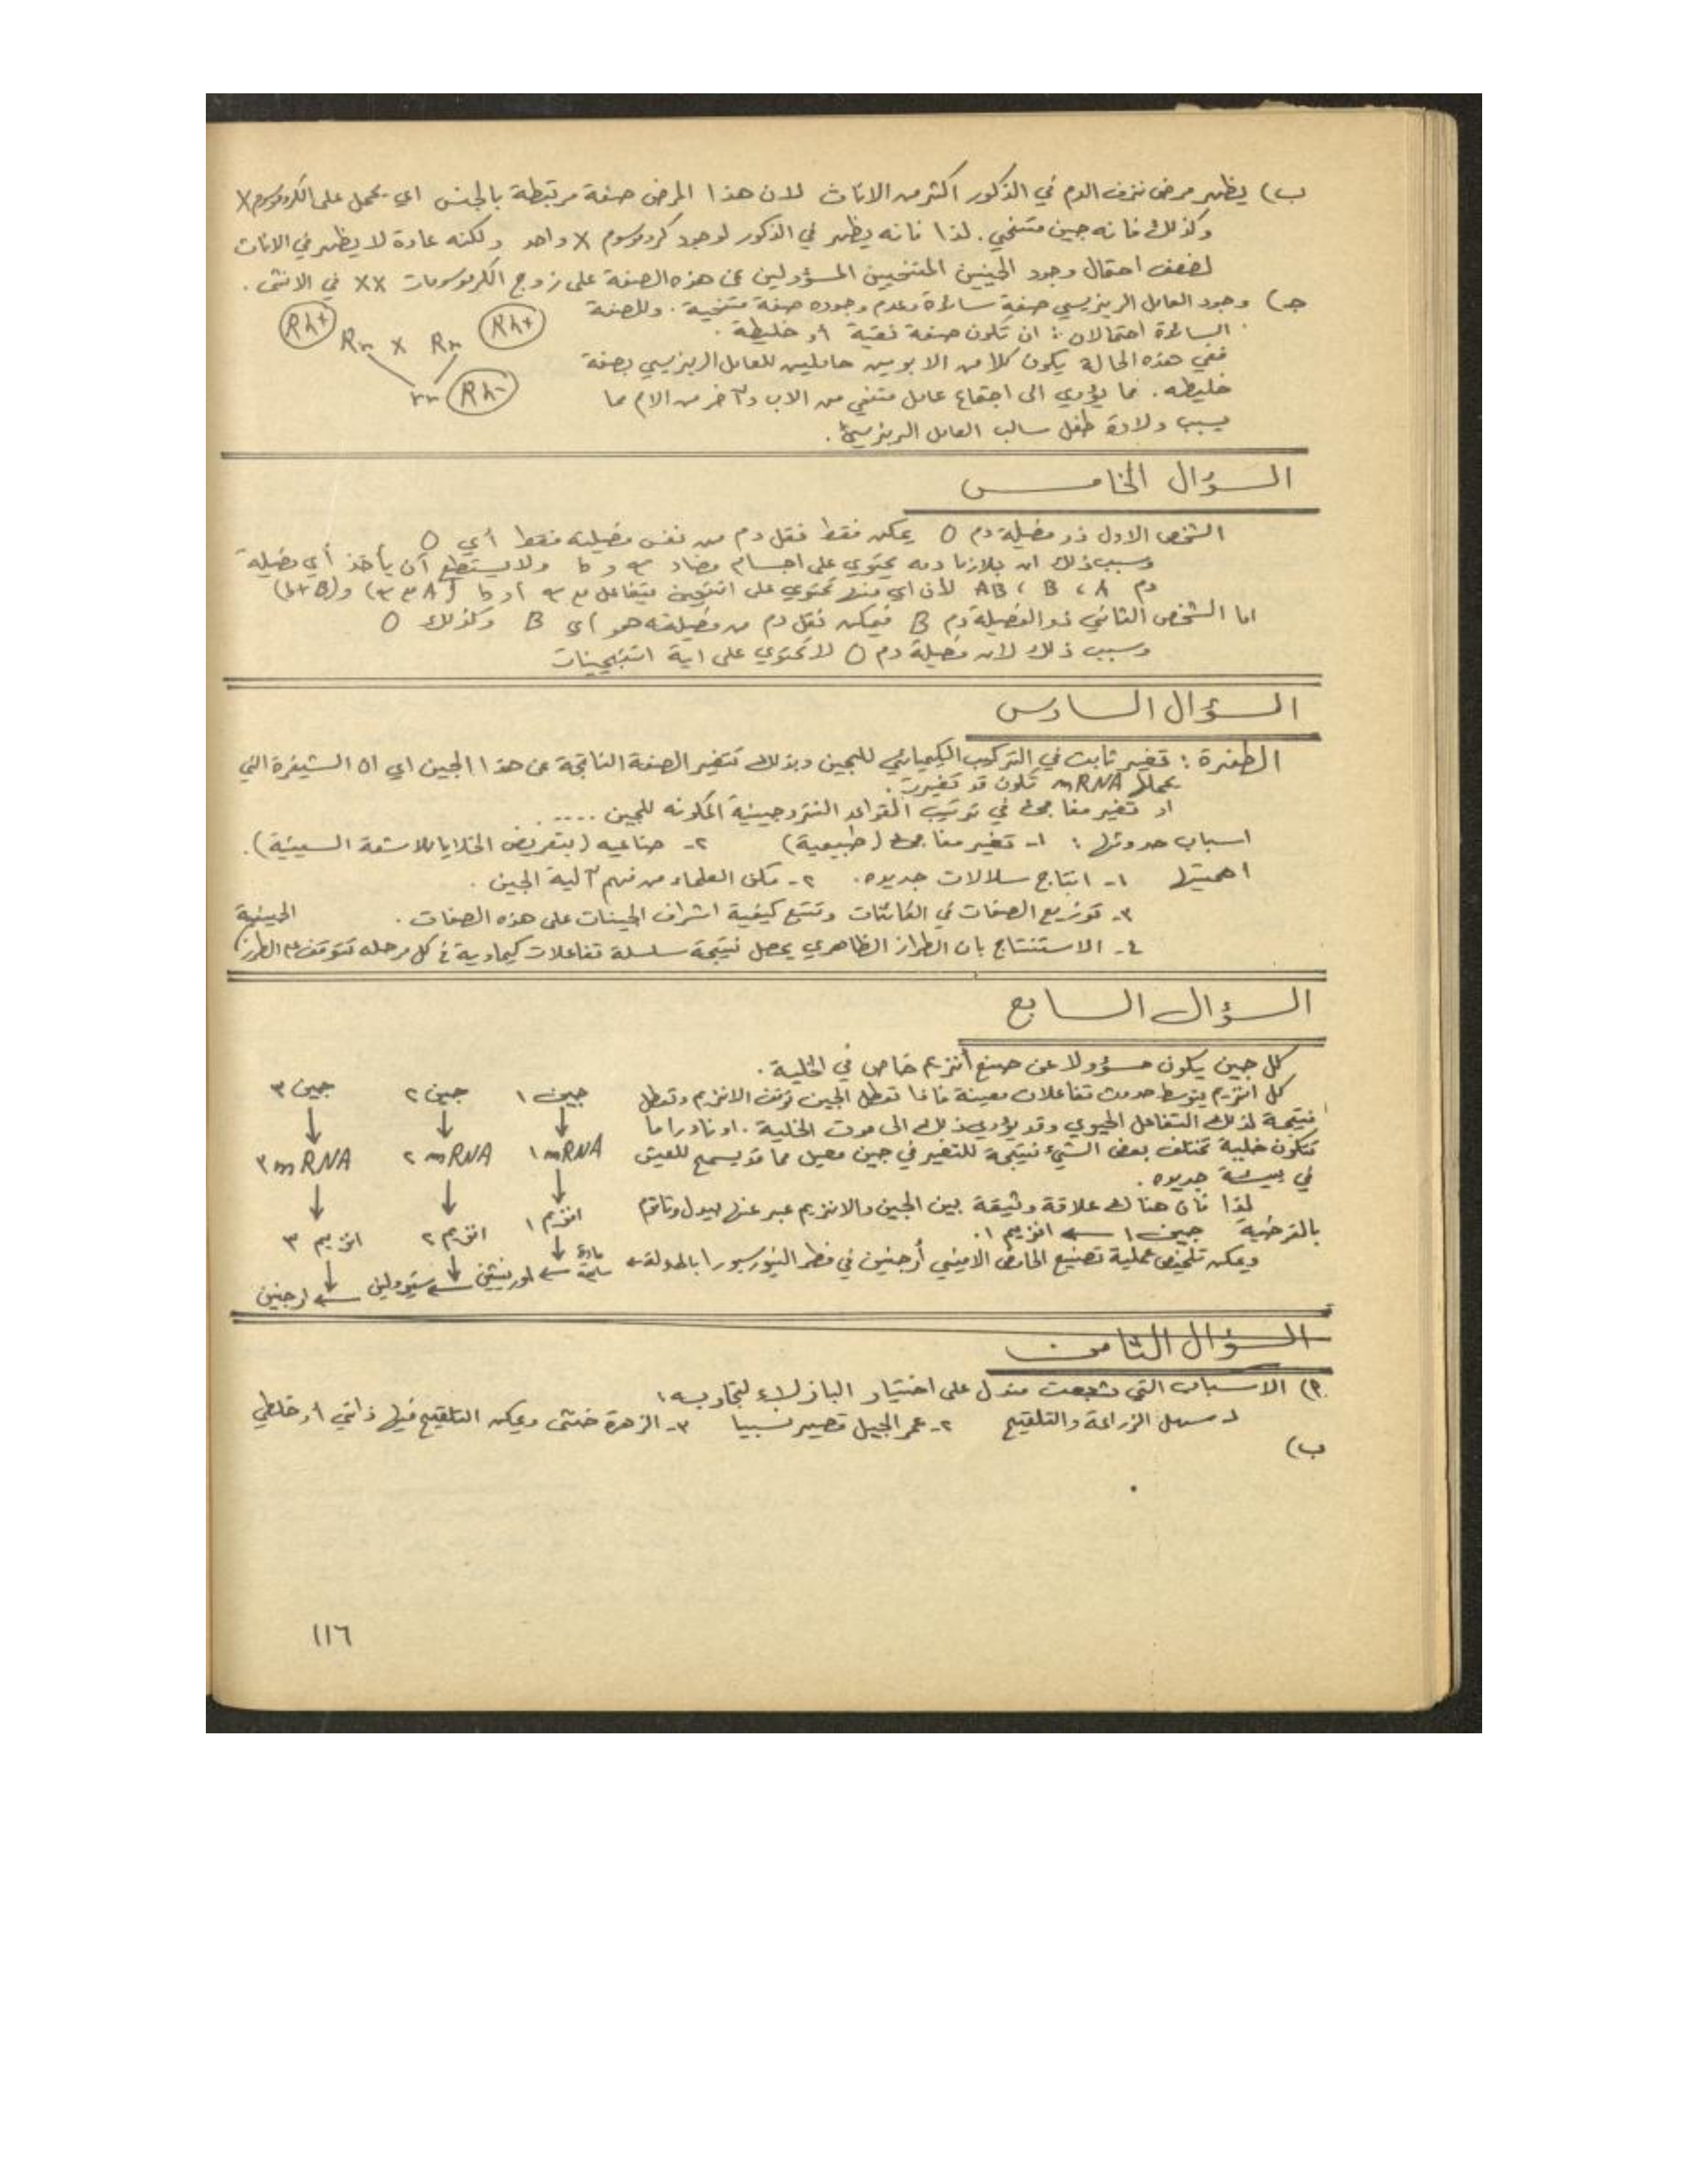 ب) يظهر مرض نزف الدم في الذكور اكثر من الاناث لان هذا المرض صفة مرتبطة بالجنس اي يحمل على الكروموسوم X
وكذلك فانه جين متنحي. لذا فانه يظهر في الذكور لوجود كروموسوم X واحد ولكنه عادة لا يظهر في الاناث
لضعف احتمال وجود الجينين المتنحيين المسؤولين عن هذه الصفة على زوج الكروموسومات XX في الانثى.
جـ) وجود العامل الريزيسي صفة سائدة وعدم وجوده صفة متنحية. وللصفة
السائدة احتمالان: ان تكون صفة نقية أو خليطة.
ففي هذه الحالة يكون كلا من الابوين حاملين للعامل الريزيسي بصفة
خليطه. مما يؤدي الى اجتماع عامل متنحي من الاب وآخر من الام مما
يسبب ولادة طفل سالب العامل الريزيسي.
Rh+ Rr X Rr Rh+
rr Rh-
السؤال الخامس
الشخص الاول ذو فصيلة دم O يمكن فقط نقل دم من نفس فصيلته فقط أي O
وسبب ذلك ان بلازما دمه يحتوي على اجسام مضاد a و b ولا يستطيع أن يأخذ أي فصيلة
دم A ، B ، AB لأن اي منها تحتوي على انتيجين يتفاعل مع a أو b (A مع a) و (B + b)
اما الشخص الثاني ذو الفصيلة دم B فيمكن نقل دم من فصيلته هو اي B وكذلك O
وسبب ذلك لان فصيلة دم O لا تحتوي على اية انتيجينات
السؤال السادس
الطفرة: تغير ثابت في التركيب الكيميائي للجين وبذلك تتغير الصفة الناتجة عن هذا الجين اي ان الشيفرة التي
يحملها mRNA تكون قد تغيرت.
او تغير مفاجئ في ترتيب القواعد النتروجينية المكونه للجين ....
اسباب حدوثها: ١- تغير مفاجئ (طبيعية) ٢- صناعيه (بتعريض الخلايا للاشعة السينية).
اهميتها ١- انتاج سلالات جديده. ٢- مكن العلماء من فهم آلية الجين.
٣- توزيع الصفات في الكائنات وتتبع كيفية اشراف الجينات على هذه الصفات.
٤- الاستنتاج بان الطراز الظاهري يحصل نتيجة سلسلة تفاعلات كيماوية في كل مرحله تتوقف على الطرز الجينية
السؤال السابع
كل جين يكون مسؤولا عن صنع أنزيم خاص في الخلية.
كل انزيم يتوسط حدوث تفاعلات معينة فاذا تعطل الجين توقف الانزيم وتعطل
نتيجة لذلك التفاعل الحيوي وقد يؤدي ذلك الى موت الخلية. او نادرا ما
تتكون خلية تختلف بعض الشيء نتيجة للتغير في جين معين مما قد يسمح للعيش
في بيئة جديده.
لذا فان هنالك علاقة وثيقة بين الجين والانزيم عبر عنها بيدل وتاتم
بالفرضية جين ١ ← انزيم ١.
ويمكن تلخيص عملية تصنيع الحامض الاميني أرجنين في فطر النيوروسبورا بالمعادلة ←
جين ١ جين ٢ جين ٣
١ mRNA ٢ mRNA ٣ mRNA
انزيم ١ انزيم ٢ انزيم ٣
مادة ← اورنيثين ← سترولين ← ارجنين
السؤال الثامن
٢) الاسباب التي شجعت مندل على اختيار البازلاء لتجاربه:
١- سهل الزراعة والتلقيح ٢- عمر الجيل قصير نسبيا ٣- الزهرة خنثى ويمكن التلقيح فيها ذاتي أو خلطي
ب)
١١٦